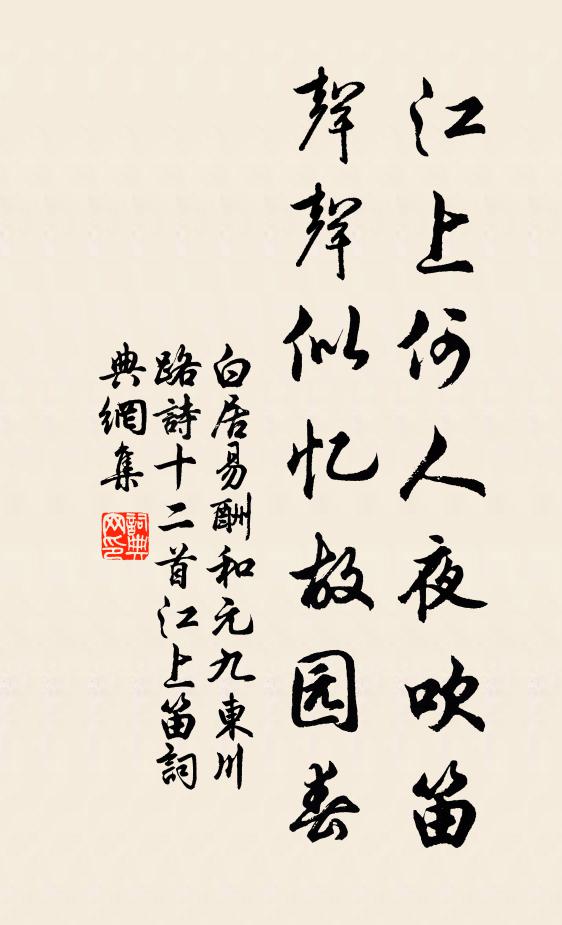 江上何人夜吹笛
聲聲似忆故园春
白居易酬和元九東川
路詩十二首江上笛詞
典網集
詞典網印